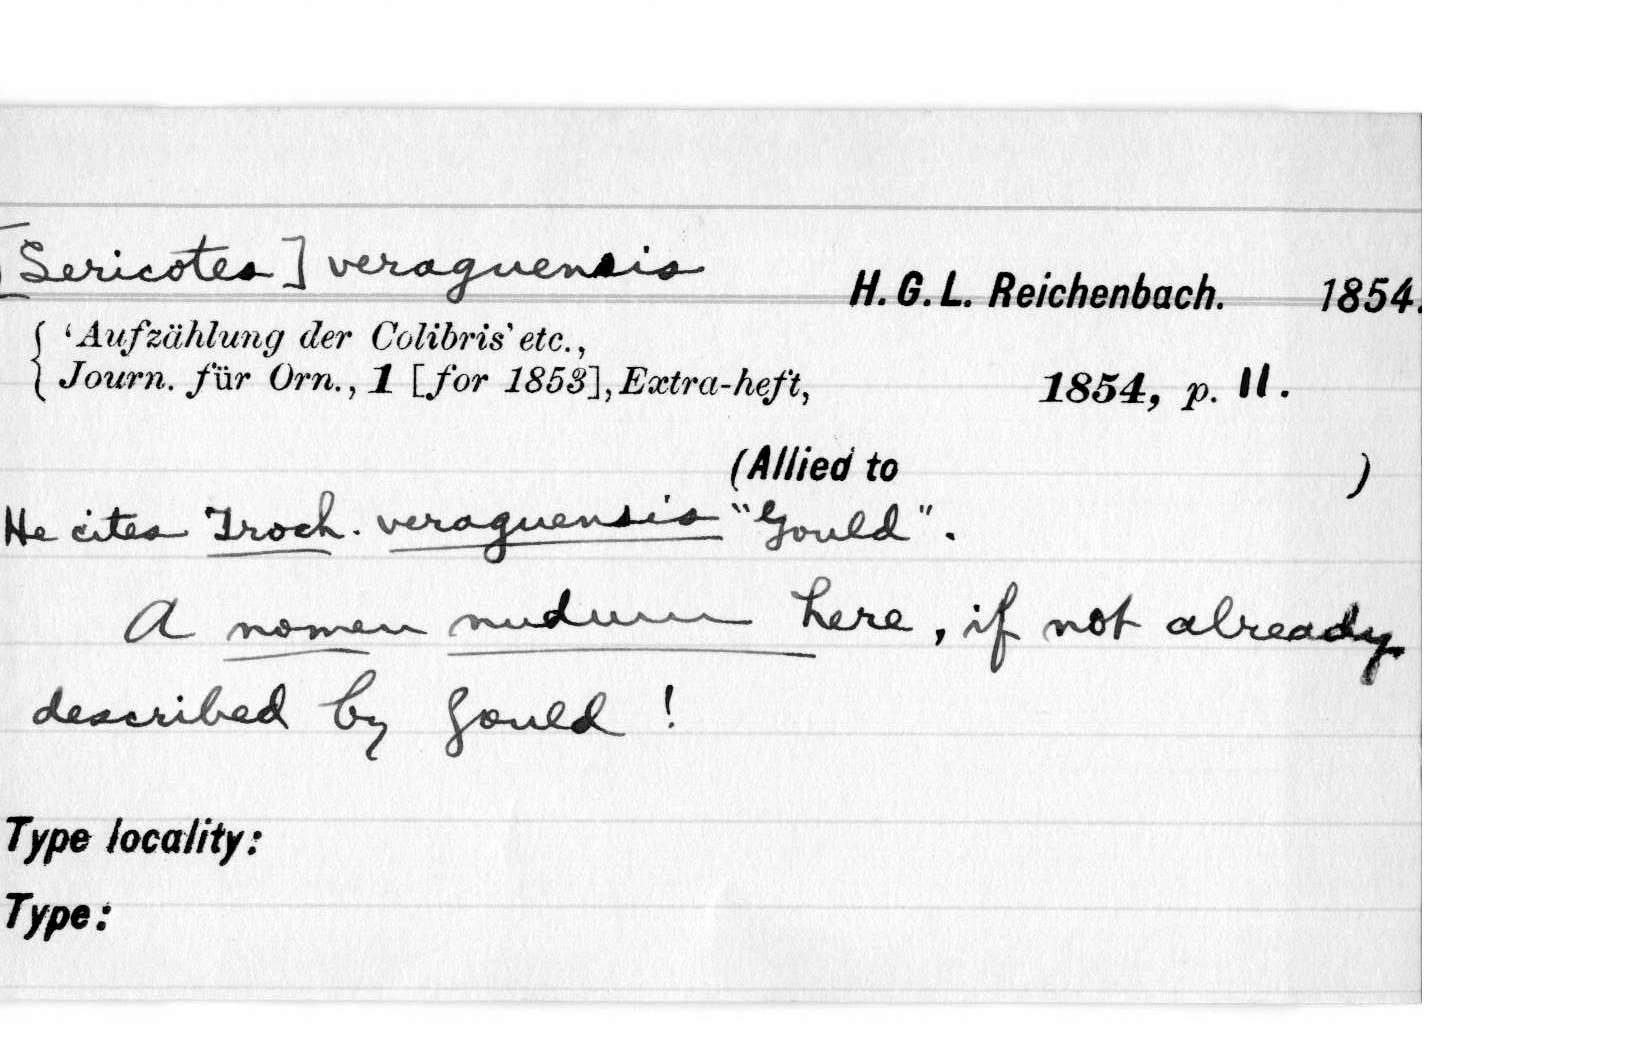 [Sericotes] veraguensis H. G. L. Reichenbach. 1854.
'Aufzählung der Colibris' etc.,
Journ. für Orn., 1 [for 1853], Extra-heft, 1854, p. 11.
(Allied to )
He cites Troch. veraguensis "Gould".
A nomen nudum here, if not already
described by Gould!
Type locality:
Type: